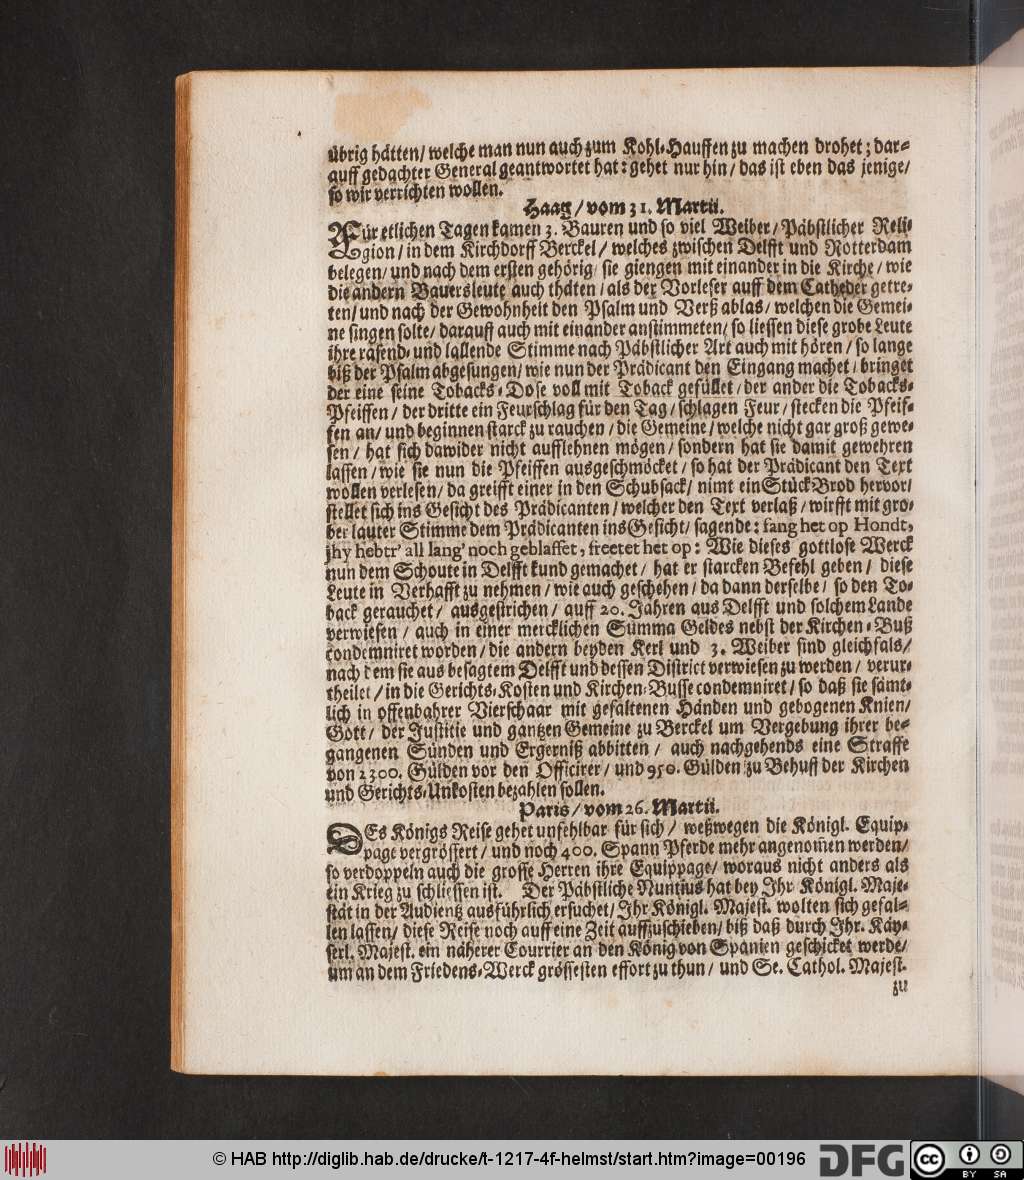 übrig hätten/ welche man nun auch zum Kohl-Hauffen zu machen drohet; dar-
auff gedachter General geantwortet hat: gehet nur hin/ das ist eben das jenige/
so wir verrichten wollen.
Haag/ vom 31. Martii.
FÜr etlichen Tagen kamen 3. Bauren und so viel Weiber/ Päbstlicher Reli-
gion/ in dem Kirchdorff Berckel/ welches zwischen Delfft und Rotterdam
belegen/ und nach dem ersten gehörig/ sie giengen mit einander in die Kirche/ wie
die andern Bauersleute auch thäten/ als der Vorleser auff dem Catheder getre-
ten/ und nach der Gewohnheit den Psalm und Verß ablas/ welchen die Gemei-
ne singen solte/ darauff auch mit einander anstimmeten/ so liessen diese grobe Leute
ihre rasend- und lallende Stimme nach Päbstlicher Art auch mit hören/ so lange
biß der Psalm abgesungen/ wie nun der Prädicant den Eingang machet/ bringet
der eine seine Tobacks-Dose voll mit Toback gefüllet/ der ander die Tobacks-
Pfeiffen/ der dritte ein Feurschlag für den Tag/ schlagen Feur/ stecken die Pfeif-
fen an/ und beginnen starck zu rauchen/ die Gemeine/ welche nicht gar groß gewe-
sen/ hat sich dawider nicht aufflehnen mögen/ sondern hat sie damit gewehren
lassen/ wie sie nun die Pfeiffen ausgeschmöcket/ so hat der Prädicant den Text
wollen verlesen/ da greifft einer in den Schubsack/ nimt ein Stück Brod hervor/
stellet sich ins Gesicht des Prädicanten/ welcher den Text verlaß/ wirfft mit gro-
ber lauter Stimme dem Prädicanten ins Gesicht/ sagende: fang het op Hondt,
jhy hebtr' all lang' noch geblaffet, freetet het op: Wie dieses gottlose Werck
nun dem Schoute in Delfft kund gemachet/ hat er starcken Befehl geben/ diese
Leute in Verhafft zu nehmen/ wie auch geschehen/ da dann derselbe/ so den To-
back gerauchet/ ausgestrichen/ auff 20. Jahren aus Delfft und solchem Lande
verwiesen/ auch in einer mercklichen Summa Geldes nebst der Kirchen-Buß
condemniret worden/ die andern beyden Kerl und 3. Weiber sind gleichfals/
nach dem sie aus besagtem Delfft und dessen District verwiesen zu werden/ verur-
theilet/ in die Gerichts-Kosten und Kirchen-Busse condemniret/ so daß sie sämt-
lich in offenbahrer Vierschaar mit gefaltenen Händen und gebogenen Knien/
Gott/ der Justitie und gantzen Gemeine zu Berckel um Vergebung ihrer be-
gangenen Sünden und Ergerniß abbitten/ auch nachgehends eine Straffe
von 2300. Gülden vor den Officirer/ und 950. Gülden zu Behuff der Kirchen
und Gerichts-Unkosten bezahlen sollen.
Paris/ vom 26. Martii.
DEs Königs Reise gehet unfehlbar für sich/ weßwegen die Königl. Equip-
page vergrössert/ und noch 400. Spann Pferde mehr angenom̃en werden/
so verdoppeln auch die grosse Herren ihre Equippage/ woraus nicht anders als
ein Krieg zu schliessen ist. Der Päbstliche Nuntius hat bey Ihr Königl. Maje-
stät in der Audientz ausführlich ersuchet/ Ihr Königl. Majest. wolten sich gefal-
len lassen/ diese Reise noch auff eine Zeit auffzuschieben/ biß daß durch Ihr. Käy-
serl. Majest. ein näherer Courrier an den König von Spanien geschicket werde/
um an dem Friedens-Werck grössesten effort zu thun/ und Se. Cathol. Majest.
zu
© HAB http://diglib.hab.de/drucke/t-1217-4f-helmst/start.htm?image=00196
DFG
cc
BY SA